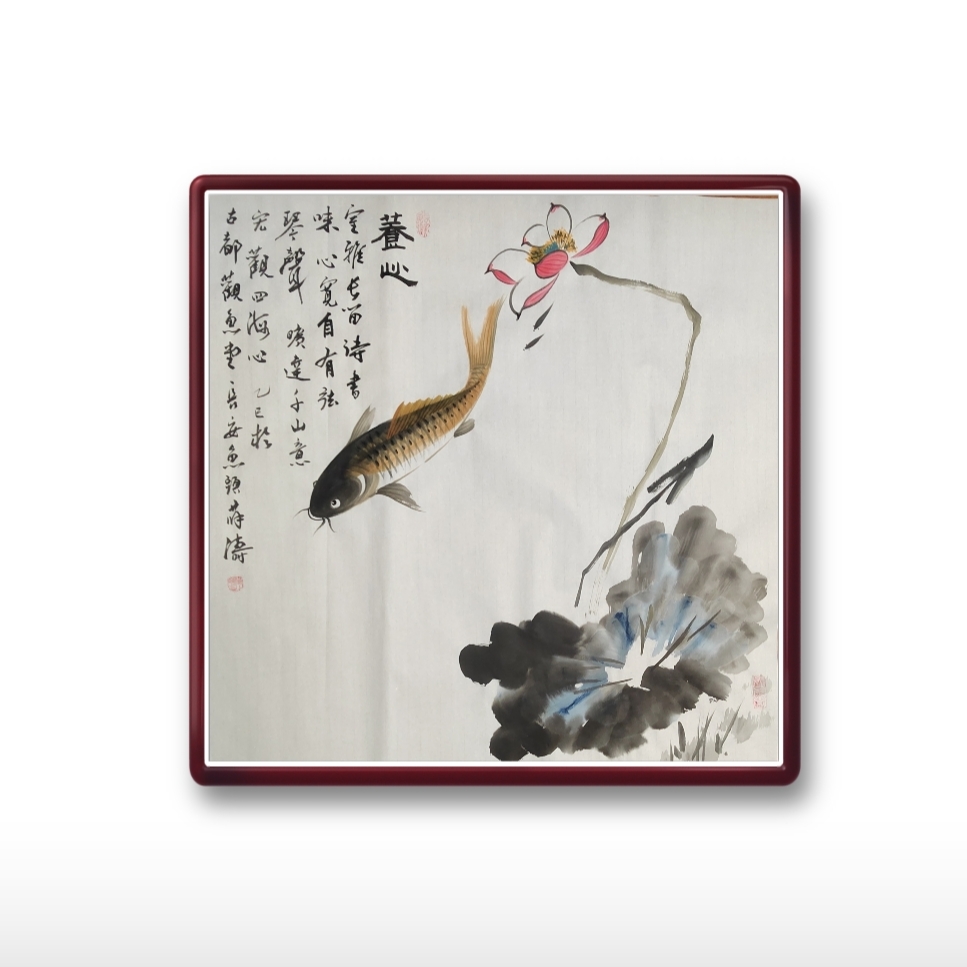 養心
室雅長留詩書
味心寬自有弦
琴聲 曠達千山意
宏觀四海心 乙巳於
古都觀魚堂 長安魚頭薛濤